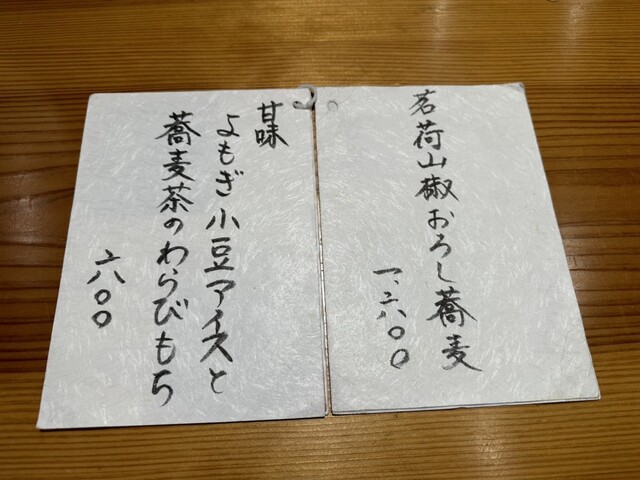 茗荷山椒おろし蕎麦
一、六〇〇
甘味
よもぎ小豆アイスと
蕎麦茶のわらびもち
六〇〇